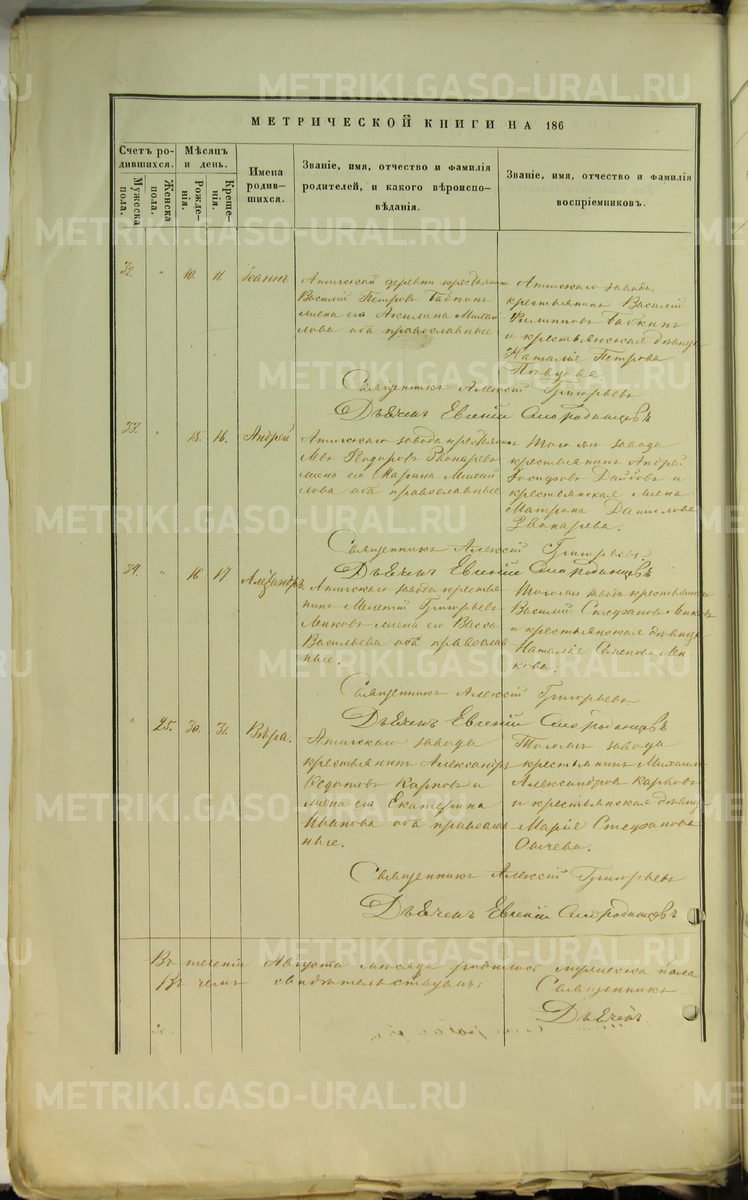 METRIKI.GASO-URAL.RU
МЕТРИЧЕСКОЙ КНИГИ НА 186
Счетъ родившихся.
Мужеска пола.
Женска пола.
Мѣсяцъ и день.
Рожденія.
Крещенія.
Имена родившихся.
Званіе, имя, отчество и фамилія родителей, и какого вѣроисповѣданія.
Званіе, имя, отчество и фамилія воспріемниковъ.
32. " 10. 11. Іоаннъ
деревни крестьянинъ
Василій Петровъ Бабкинъ
жена его Акилина Михай
лова оба православные
завода
крестьянинъ Василій
Филиповъ Бабкинъ
и крестьянская дѣвица
Наталія Петрова
Священникъ Алексій Григорьевъ
Дьячекъ Евгеній Смородинцовъ
33. " 15. 16. Андрей
завода крестьянинъ
Левъ Ѳедоровъ
жена его Марина Михай
лова оба православные
Тогожъ завода
крестьянинъ Андрей
Іосифовъ и
крестьянская жена
Матрона Данилова
Звонарева.
Священникъ Алексій Григорьевъ
Дьячекъ Евгеній Смородинцовъ
34. " 16 17 Александръ
завода крестья
нинъ Мелетій Григорьевъ
жена его Васса
Васильева оба православ
ные.
Тогожъ завода крестьянинъ
Василій Стефановъ
и крестьянская дѣвица
Наталія Семенова
Священникъ Алексій Григорьевъ
Дьячекъ Евгеній Смородинцовъ
" 25. 30. 31. Вѣра.
завода
крестьянинъ Александръ
Ѳедотовъ Карповъ и
жена его Екатерина
Иванова оба православ
ные.
Тогожъ завода
крестьянинъ Михаилъ
Александровъ Карповъ
и крестьянская дѣвица
Марія Стефанова
Сычева.
Священникъ Алексій Григорьевъ
Дьячекъ Евгеній Смородинцовъ
Въ теченіи Августа мѣсяца родилось мужеска пола
Въ чемъ свидѣтельствуемъ: Священникъ
Дьячекъ